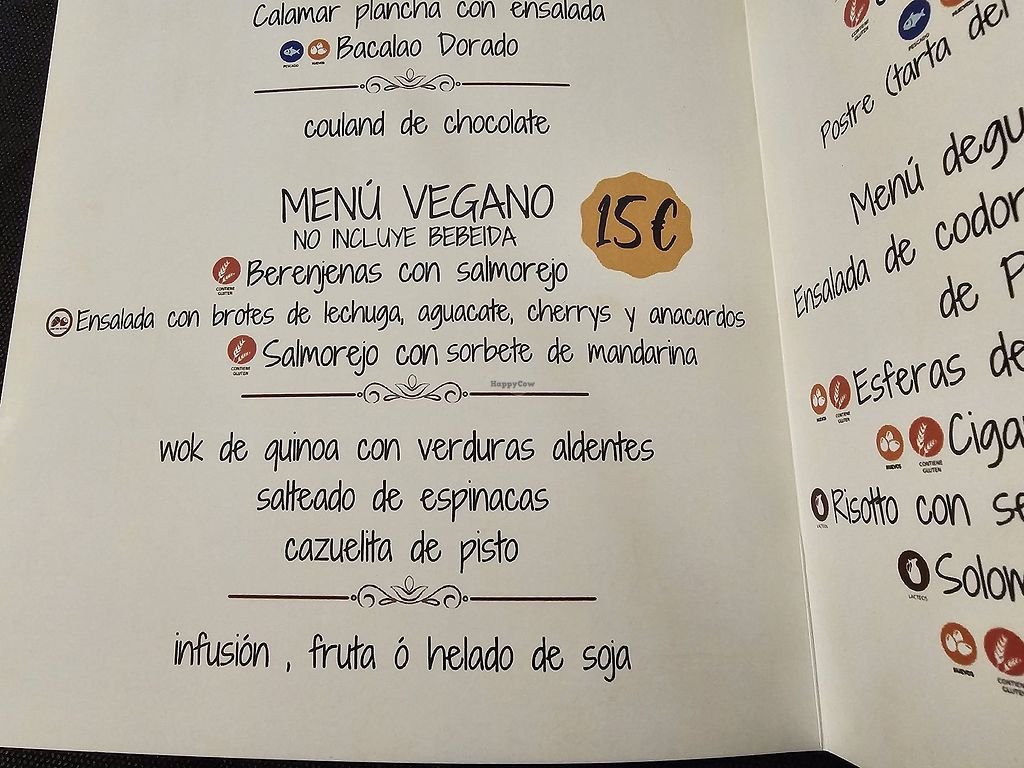 Calamar plancha con ensalada
PESCADO HUEVOS Bacalao Dorado
couland de chocolate
MENÚ VEGANO
NO INCLUYE BEBEIDA
15€
CONTIENE GLUTEN Berenjenas con salmorejo
Ensalada con brotes de lechuga, aguacate, cherrys y anacardos
CONTIENE GLUTEN Salmorejo con sorbete de mandarina
HappyCow
wok de quinoa con verduras aldentes
salteado de espinacas
cazuelita de pisto
infusión , fruta ó helado de soja
CONTIENE GLUTEN
PESCADO
Postre (tarta del
Menú degu
Ensalada de codor
de P
HUEVOS CONTIENE GLUTEN Esferas de
HUEVOS CONTIENE GLUTEN Ciga
LACTEOS Risotto con se
LACTEOS Solom
HUEVOS CONTIENE GLUTEN